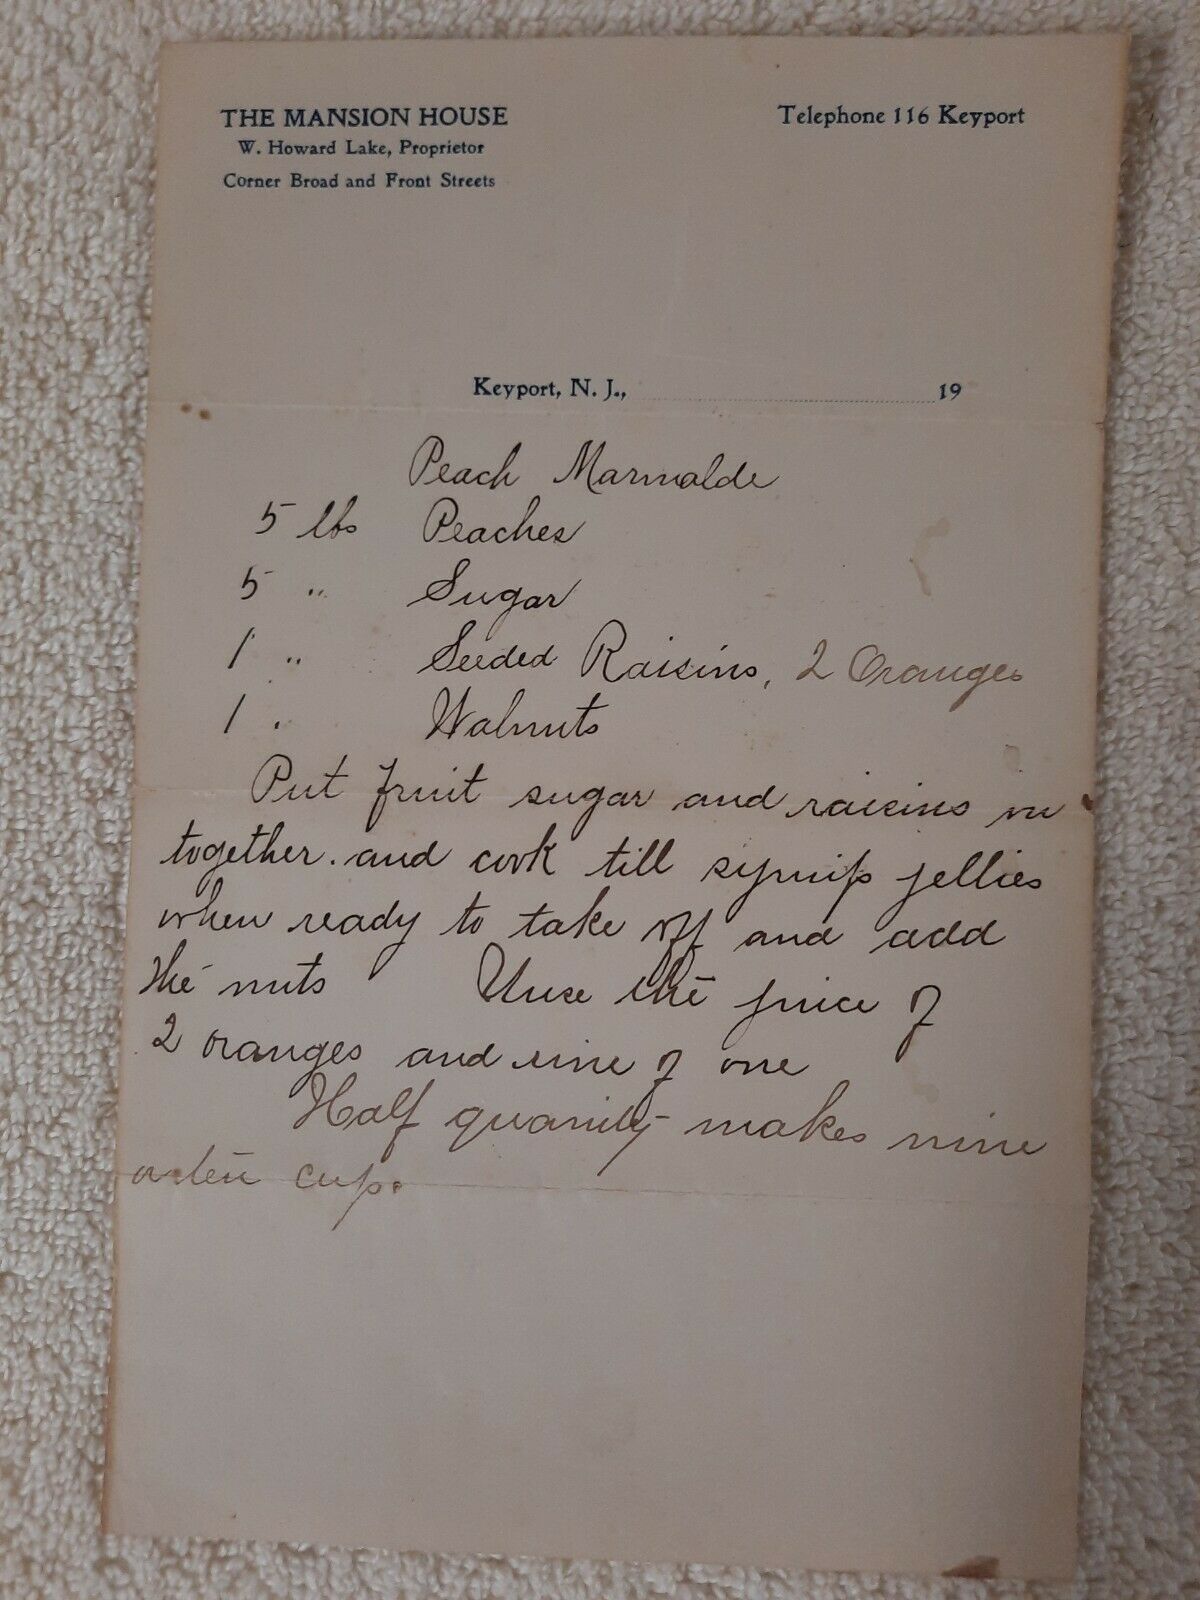 THE MANSION HOUSE
W. Howard Lake, Proprietor
Corner Broad and Front Streets
Telephone 116 Keyport
Keyport, N. J., 19
Peach Marmalde
5 lbs Peaches
5 " Sugar
1 " Seeded Raisins, 2 Oranges
1 " Walnuts
Put fruit sugar and raisins in
together. and cook till syruip jellies
when ready to take off and add
the nuts Uuse the juice of
2 oranges and rine of one
Half quanity makes nine
or ten cups.